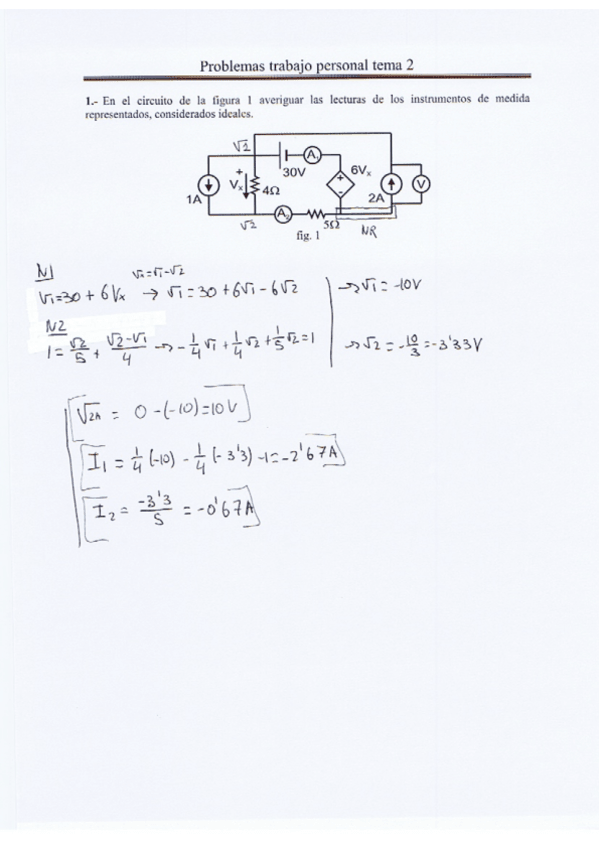 Problemas trabajo personal tema 2
1.- En el circuito de la figura 1 averiguar las lecturas de los instrumentos de medida
representados, considerados ideales.
√2
A₁
30V
6Vₓ
+
Vₓ
4Ω
+
-
1A
2A
V
√2
A₂
5Ω
NR
fig. 1
N1
Vx=√1-√2
V1=30+6Vx → √1=30+6√1-6√2
→√1=-10V
N2
1=√2/5+(√2-√1)/4 → -1/4√1+1/4√2+1/5√2=1
→√2=-10/3=-3'33V
√2A = 0-(-10)=10V
I1 = 1/4(-10) - 1/4(-3'3)-1=-2'67A
I2 = -3'3/5 = -0'67A